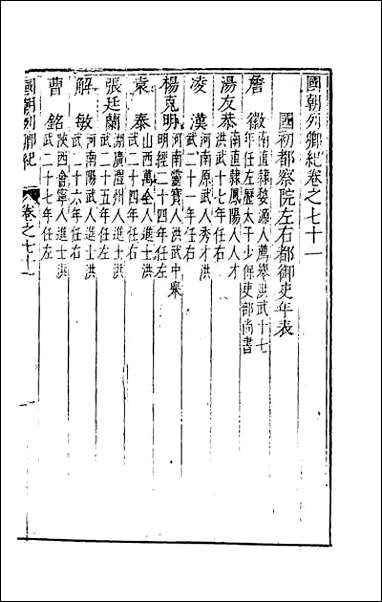 國朝列卿紀卷之七十一
國初都察院左右都御史年表
詹徽 南直隸婺源人薦舉洪武十七
年任左歷太子少保吏部尚書
湯友恭 南直隸鳳陽人人才
洪武十七年任右
凌漢 河南原武人秀才洪
武二十一年任右
楊克明 河南靈寶人洪武中舉
明經二十四年任左
袁泰 山西萬全人進士洪
武二十四年任右
張廷蘭 湖廣澧州人進士洪
武二十五年任左
解敏 河南陽武人進士洪
武二十六年任右
曹銘 陝西會寧人進士洪
武二十七年任左
國朝列卿紀 卷之七十一